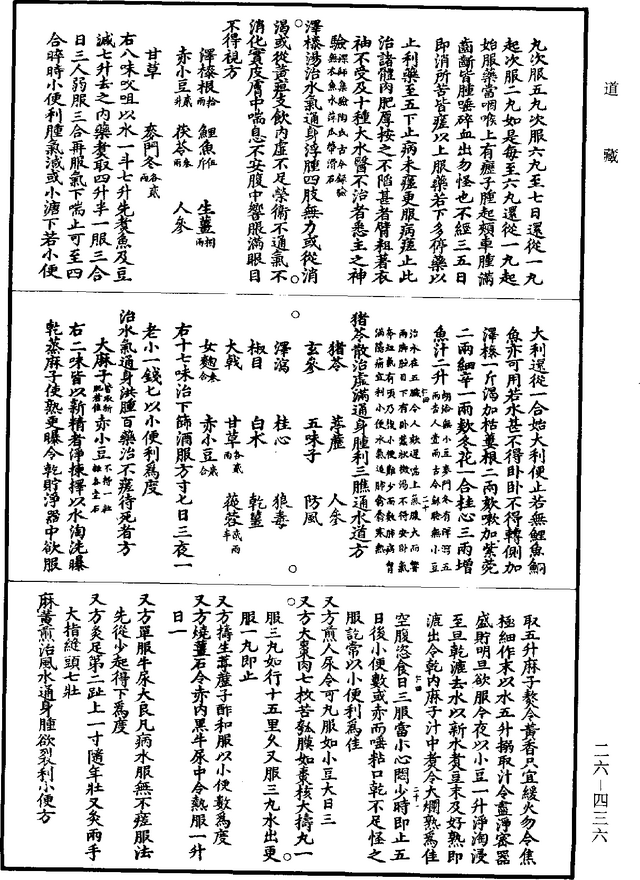 道藏
九次服五九次服六九至七日還從一九
起次服二九如是每至六九還從一九起
始服藥當咽喉上有癧子腫起頰車腫滿
齒齗皆腫唾碎血出勿怪也不經三五日
即消所苦皆瘥以上服藥若下多停藥以
止利藥至五下止病未瘥更服病瘥止此
治諸體肉肥厚按之不陷甚者臂粗著衣
袖不受及十種大水醫不治者悉主之神
驗深師集驗陶氏古今錄驗無赤魚水萍瓜蔕滑石
澤榛湯治水氣通身浮腫四肢無力或從消
渴或從黃疸支飲內虛不足榮衛不通氣不
消化實皮膚中喘息不安腹中響脹滿眼目
不得視方
澤榛根拾兩 鯉魚伍斤 生薑捌兩
赤小豆貳升 茯苓叁兩 人參
甘草 麥門冬各貳兩
右八味㕮咀以水一斗七升先煑魚及豆
減七升去之內藥煑取四升半一服三合
日三人弱服二合再服氣下喘止可至四
合晬時小便利腫氣減或小溏下若小便
大利還從一合始大利便止若無鯉魚鮦
魚亦可用若水甚不得卧卧不得轉側加
澤榛一斤渴加栝蔞根二兩欬嗽加紫菀
二兩細辛一兩欬冬花一合桂心三兩增
魚汁二升胡洽無小豆麥門冬有澤瀉五兩古今錄驗無小豆
治水在五臟令人欬逆喘上氣腹大而響兩脚腫目下有卧蠶微渴不得安卧氣
猪苓散治虛滿通身腫利三膲通水道方
猪苓 葶藶 人參
玄參 五味子 防風
澤瀉 桂心 狼毒
椒目 白术 乾薑
大戟 甘草各貳兩 蓯蓉貳兩半
女麴叁合 赤小豆貳合
右十七味治下篩酒服方寸匕日三夜一
老小一錢匕以小便利為度
治水氣通身洪腫百藥治不瘥待死者方
大麻子皆取新肥者佳 赤小豆不得一粒雜各壹石
右二味皆以新精者淨揀擇以水淘洗曝
乾蒸麻子使熟更曝令乾貯淨器中欲服
取五升麻子熬令黃香只宜緩火勿令焦
極細作末以水五升搦取汁令盡淨密器
盛貯明旦欲服今夜以小豆一升淨淘浸
至旦乾漉去水以新水煑豆未及好熟即
漉出令乾內麻子汁中煑令大爛熟為佳
空腹恣食日三服當小心悶少時即止五
日後小便數或赤而唾粘口乾不足怪之
服訖常以小便利為佳
又方煎人尿令可丸服如小豆大日三
又方大棗肉七枚苦瓠膜如棗核大擣丸一
服三丸如行十五里久又服三丸水出更
服一丸即止
又方擣生葶藶子酢和服以小便數為度
又方燒薑石令赤內黑牛尿中令熱服一升
日一
又方單服牛尿大良凡病水服無不瘥服法
先從少起得下為度
又方灸足第二趾上一寸隨年壯又灸兩手
大指縫頭七壯
麻黃煎治風水通身腫欲裂利小便方
二六—四三六